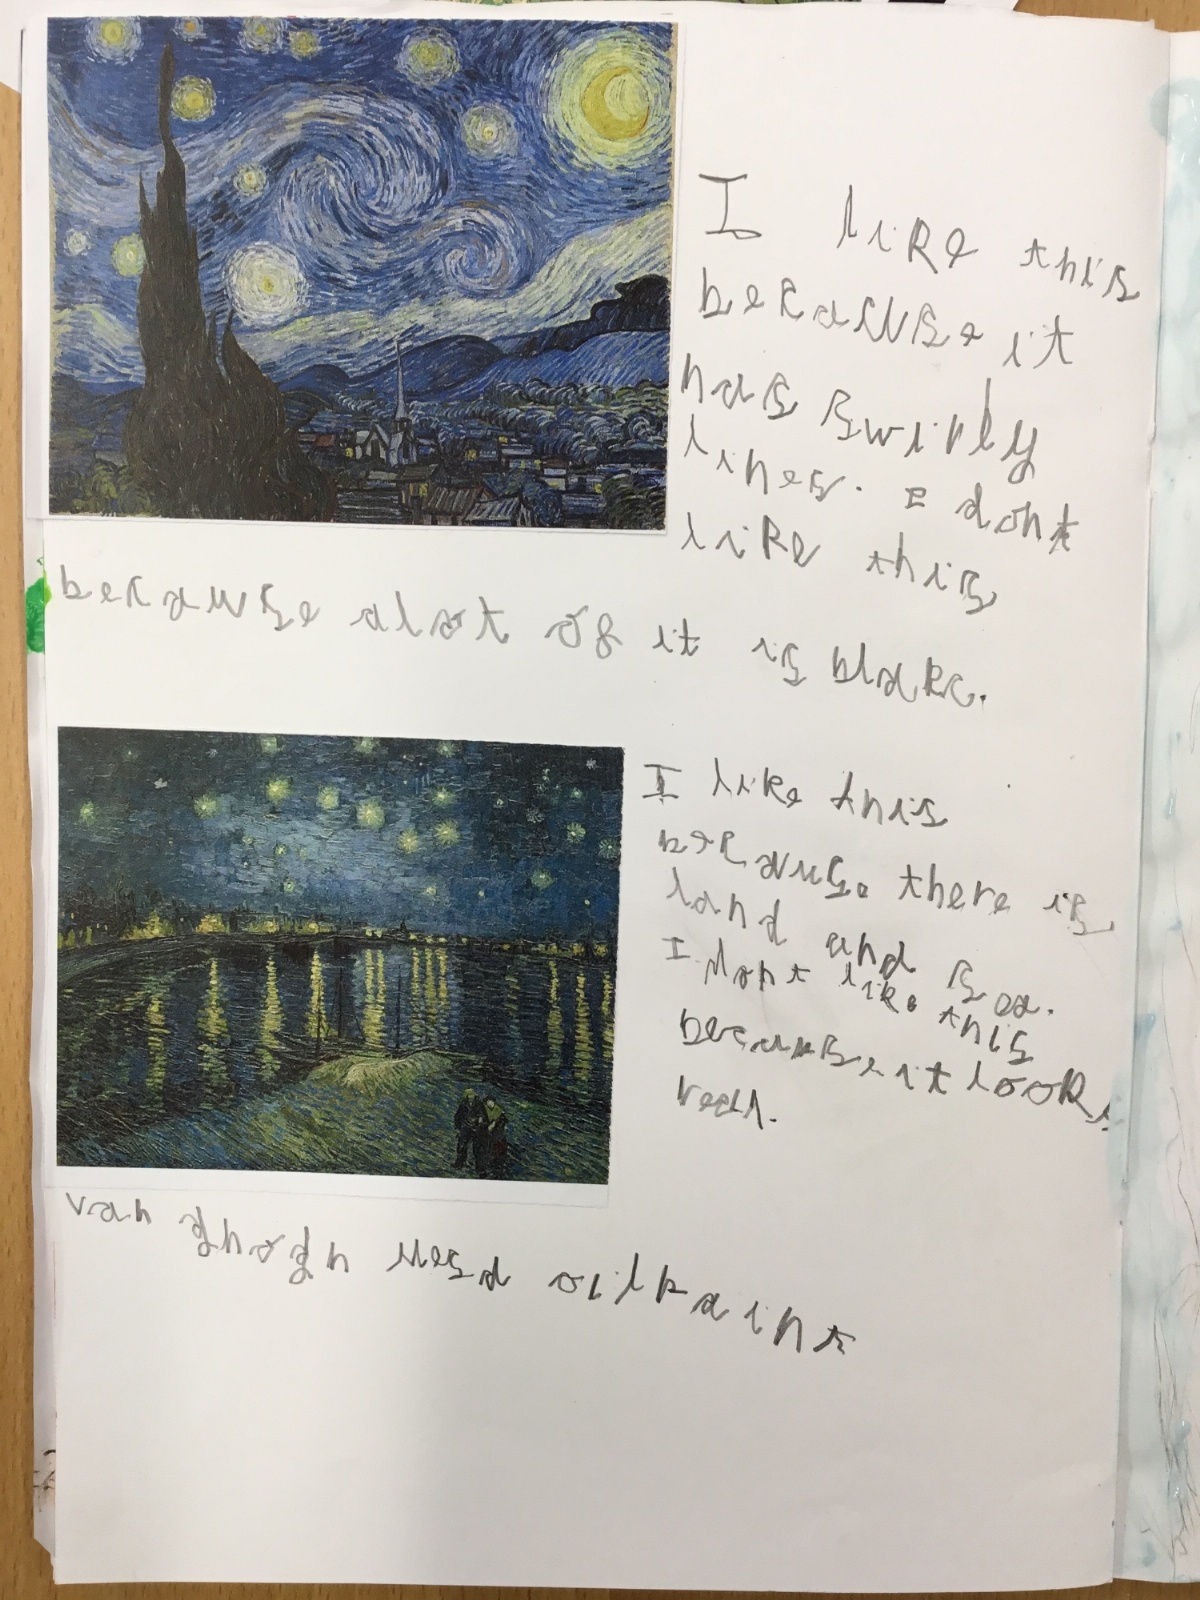 I like this
because it
has swirly
lines. I dont
like this
because alot of it is blakc.
I like this
because there is
land and sea.
I dont like this
because it looks
real.
van ghogh used oilpaint